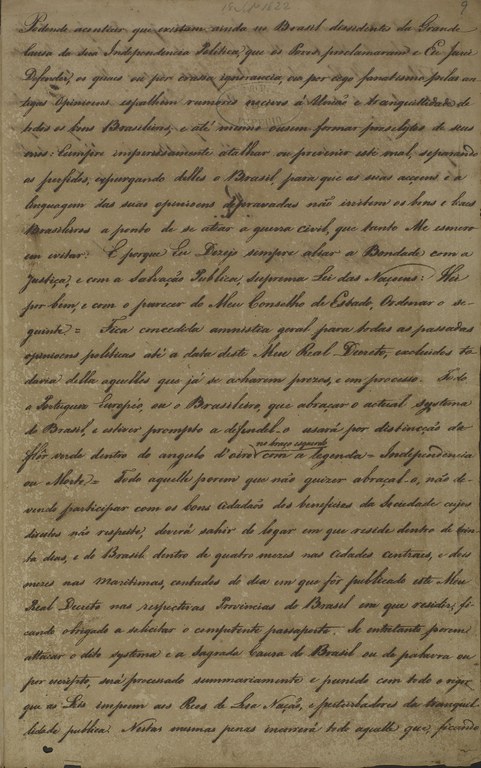 9
Podendo acontecer que existam ainda no Brasil dissidentes da Grande
Causa da sua Independencia Politica, que os Povos proclamaram e Eu Jurei
Defender, os quaes ou por crassa ignorancia, ou por cego fanatismo pelas an-
tigas opinioens espalhem rumores nocivos á União e tranquillidade de
todos os bons Brasileiros, e até mesmo ousem formar proselytos de seus
erros: Cumpre imperiosamente atalhar ou prevenir este mal, separando
os perfidos, expurgando delles o Brasil, para que as suas acçoens e a
linguagem das suas opinioens depravadas não irritem os bons e leaes
Brasileiros a ponto de se atear a guerra civil, que tanto Me esmero
em evitar: E porque Eu Dezejo sempre aliar a Bondade com a
Justiça, e com a Salvação Publica, Suprema Lei das Naçoens: Hei
por bem, e com o parecer do Meu Conselho de Estado, Ordenar o se-
guinte = Fica concedida amnistia geral para todas as passadas
opinioens politicas até a data deste Meu Real Decreto, excluidos to-
davia della aquelles que já se acharem prezos, e em processo. Todo
o Portuguez Europêo, ou o Brasileiro, que abraçar o actual systema
do Brasil, e estiver prompto a defendel-o usará por distincção da
flôr verde dentro do angulo d'oiro no braço esquerdo com a legenda = Independencia
ou Morte = Todo aquelle porem que não quizer abraçal-o, não de-
vendo participar com os bons cidadãos dos beneficios da Sociedade cujos
direitos não respeite, deverá sahir do logar em que reside dentro de trin-
ta dias, e do Brasil dentro de quatro mezes nas cidades centraes, e dois
mezes nas maritimas, contados do dia em que fôr publicado este Meu
Real Decreto nas respectivas Provincias do Brasil em que residir, fi-
cando obrigado a solicitar o competente passaporte. Se entretanto porem
attacar o dito systema e a Sagrada Causa do Brasil ou de palavra ou
por escripto, será processado summariamente e punido com todo o rigor
que as Leis impoem aos Reos de Lesa Nação, e perturbadores da tranquil-
lidade publica. Nestas mesmas penas incorrerá todo aquelle que, ficando